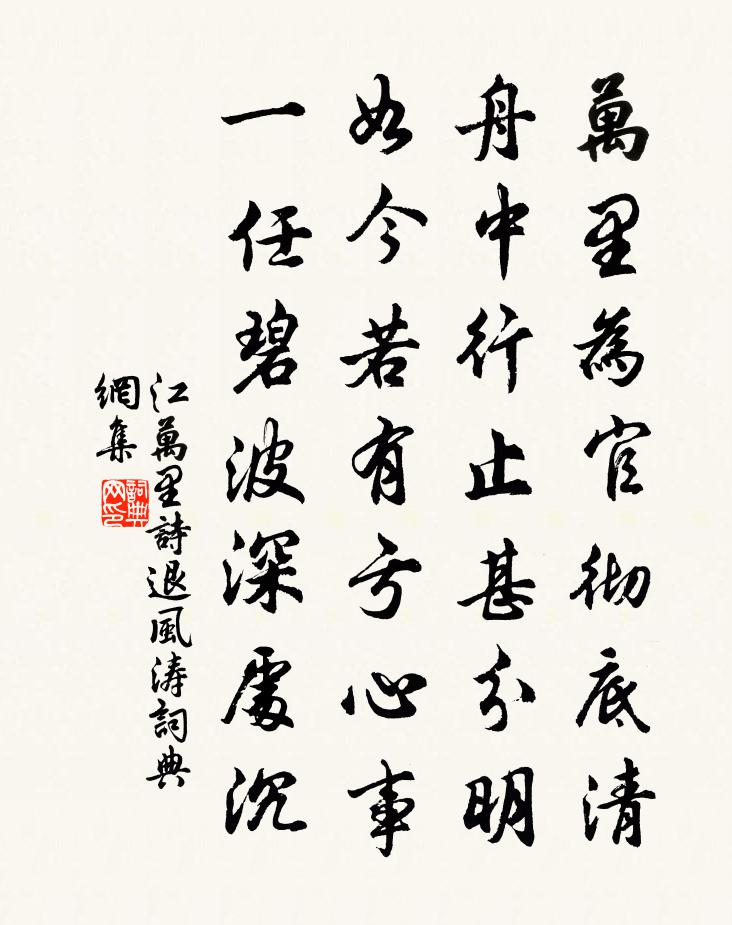 萬里為官徹底清
舟中行止甚分明
如今若有亏心事
一任碧波深處沉
江萬里詩退風濤詞典
網集
詞典
网印